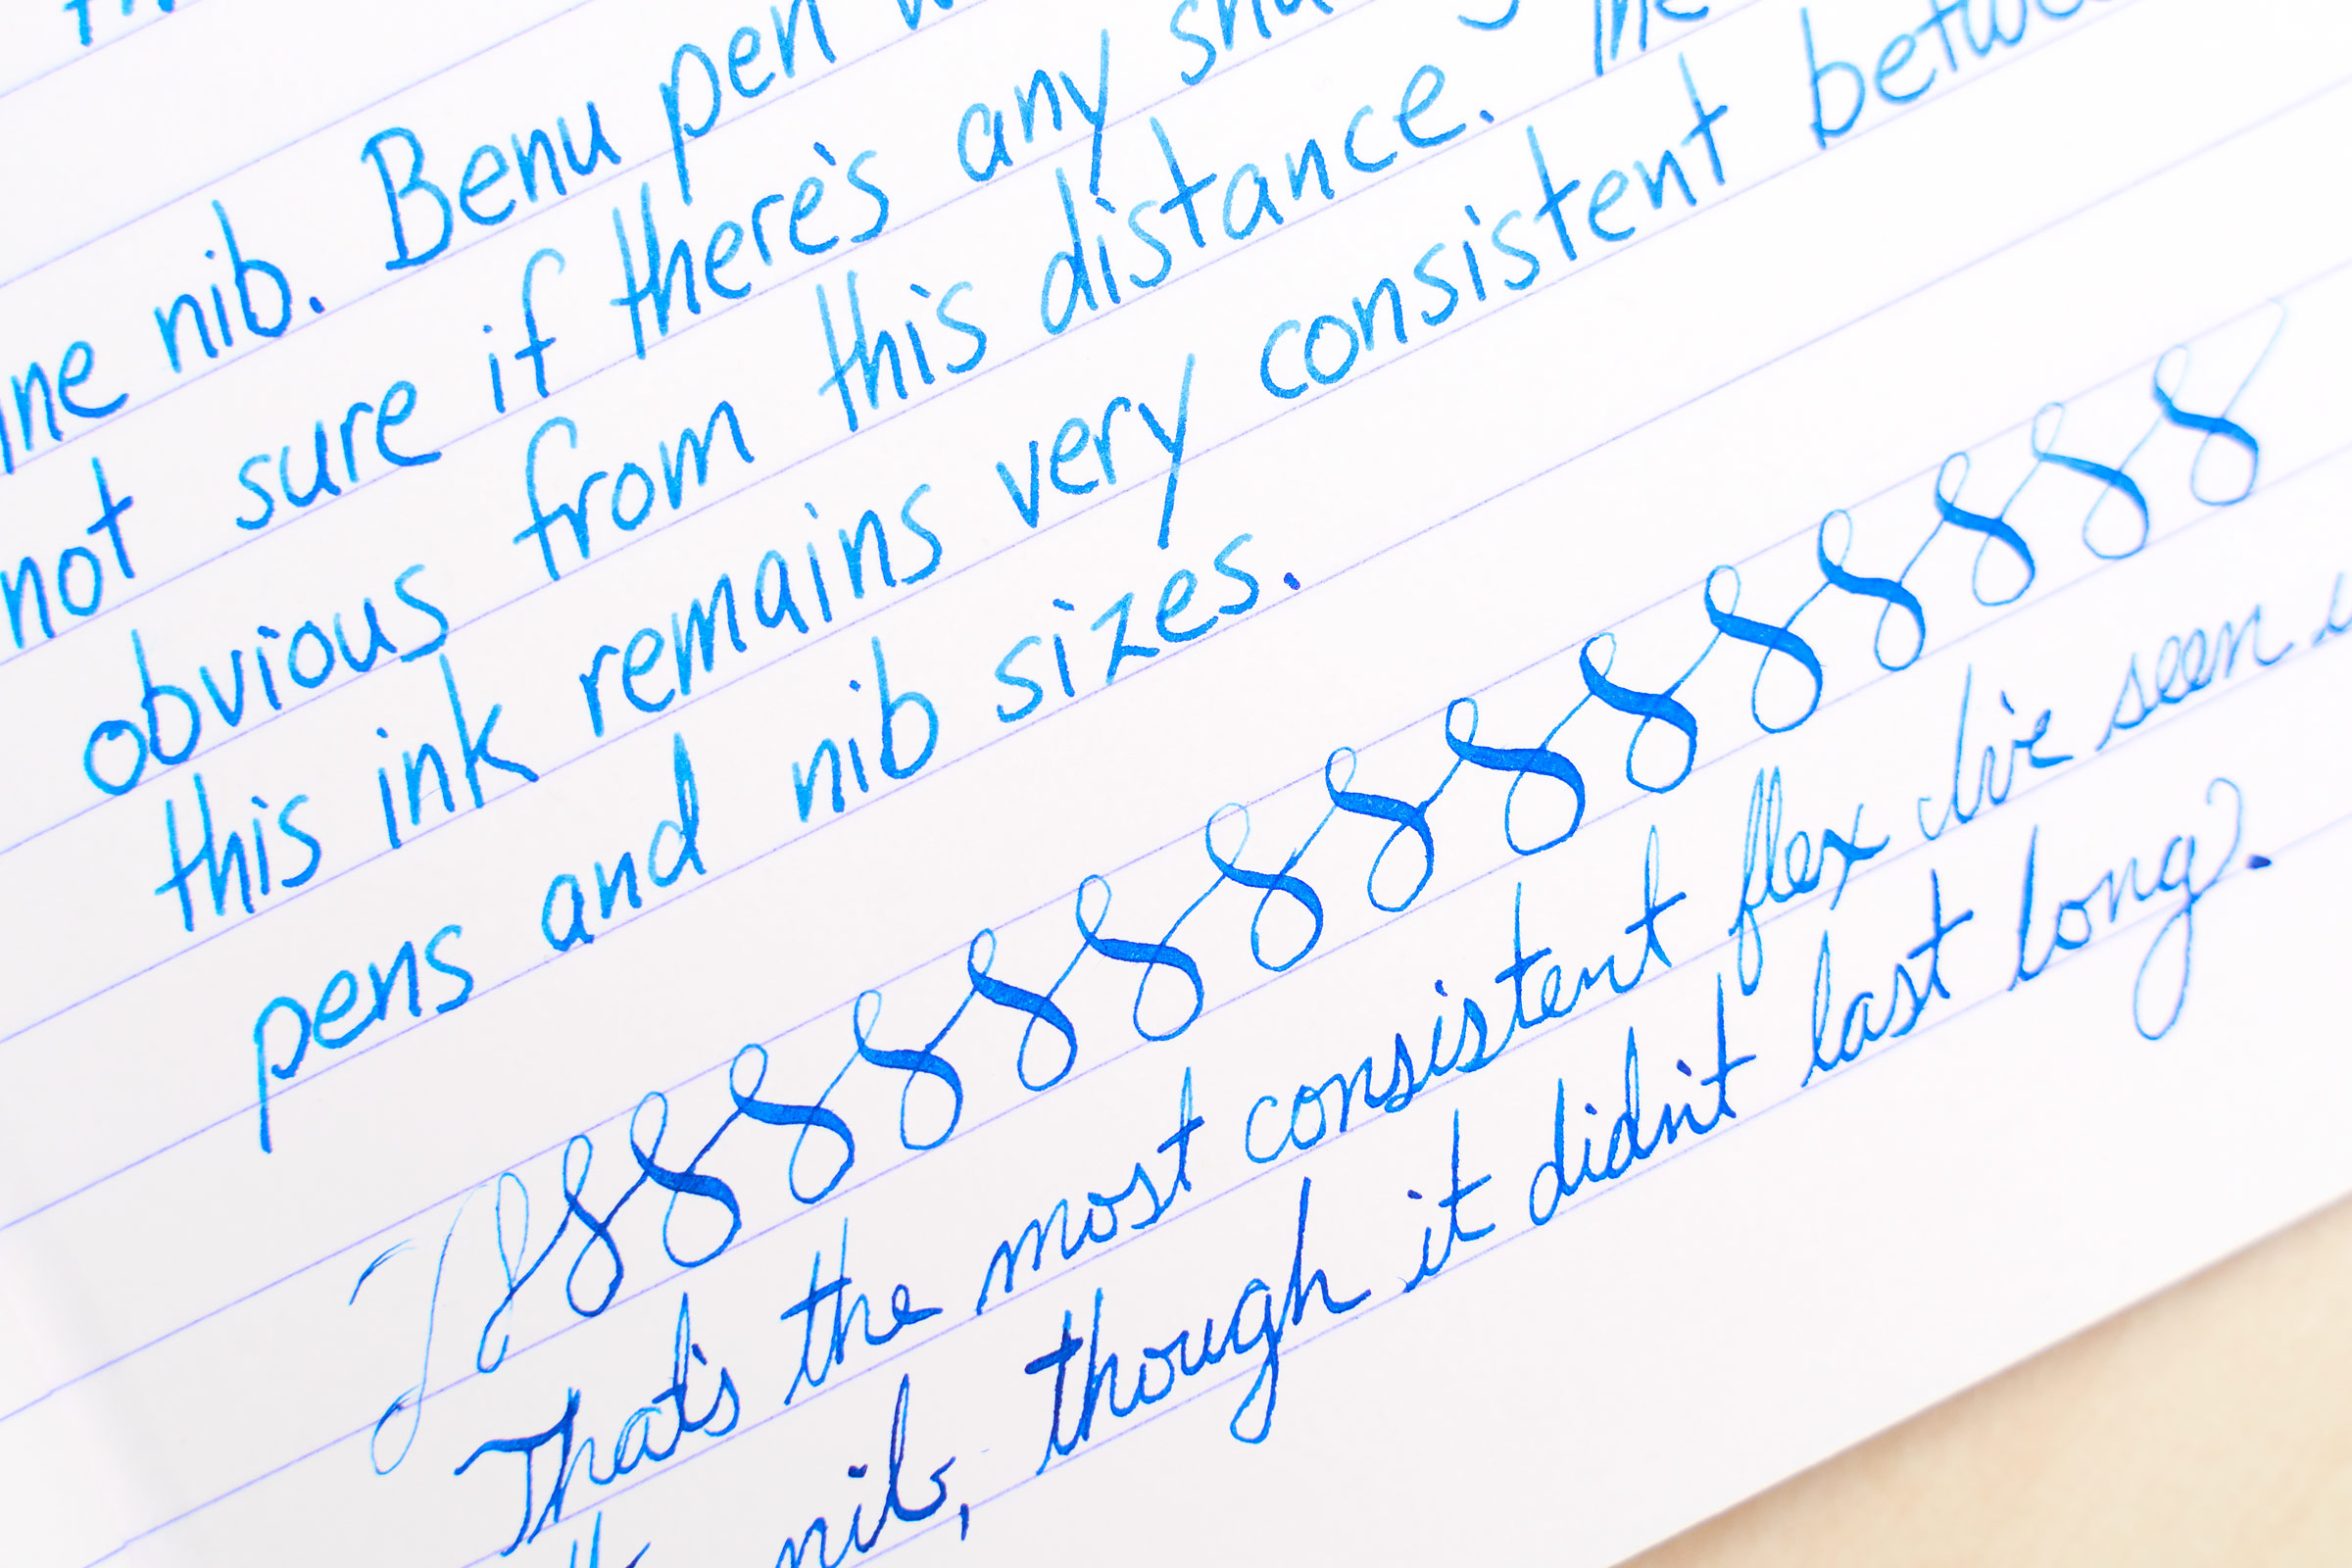 nib. Benu pen
not sure if there's any
obvious from this distance. The
this ink remains very consistent
pens and nib sizes.
That's the most consistent flex I've seen
nib, though it didn't last long.